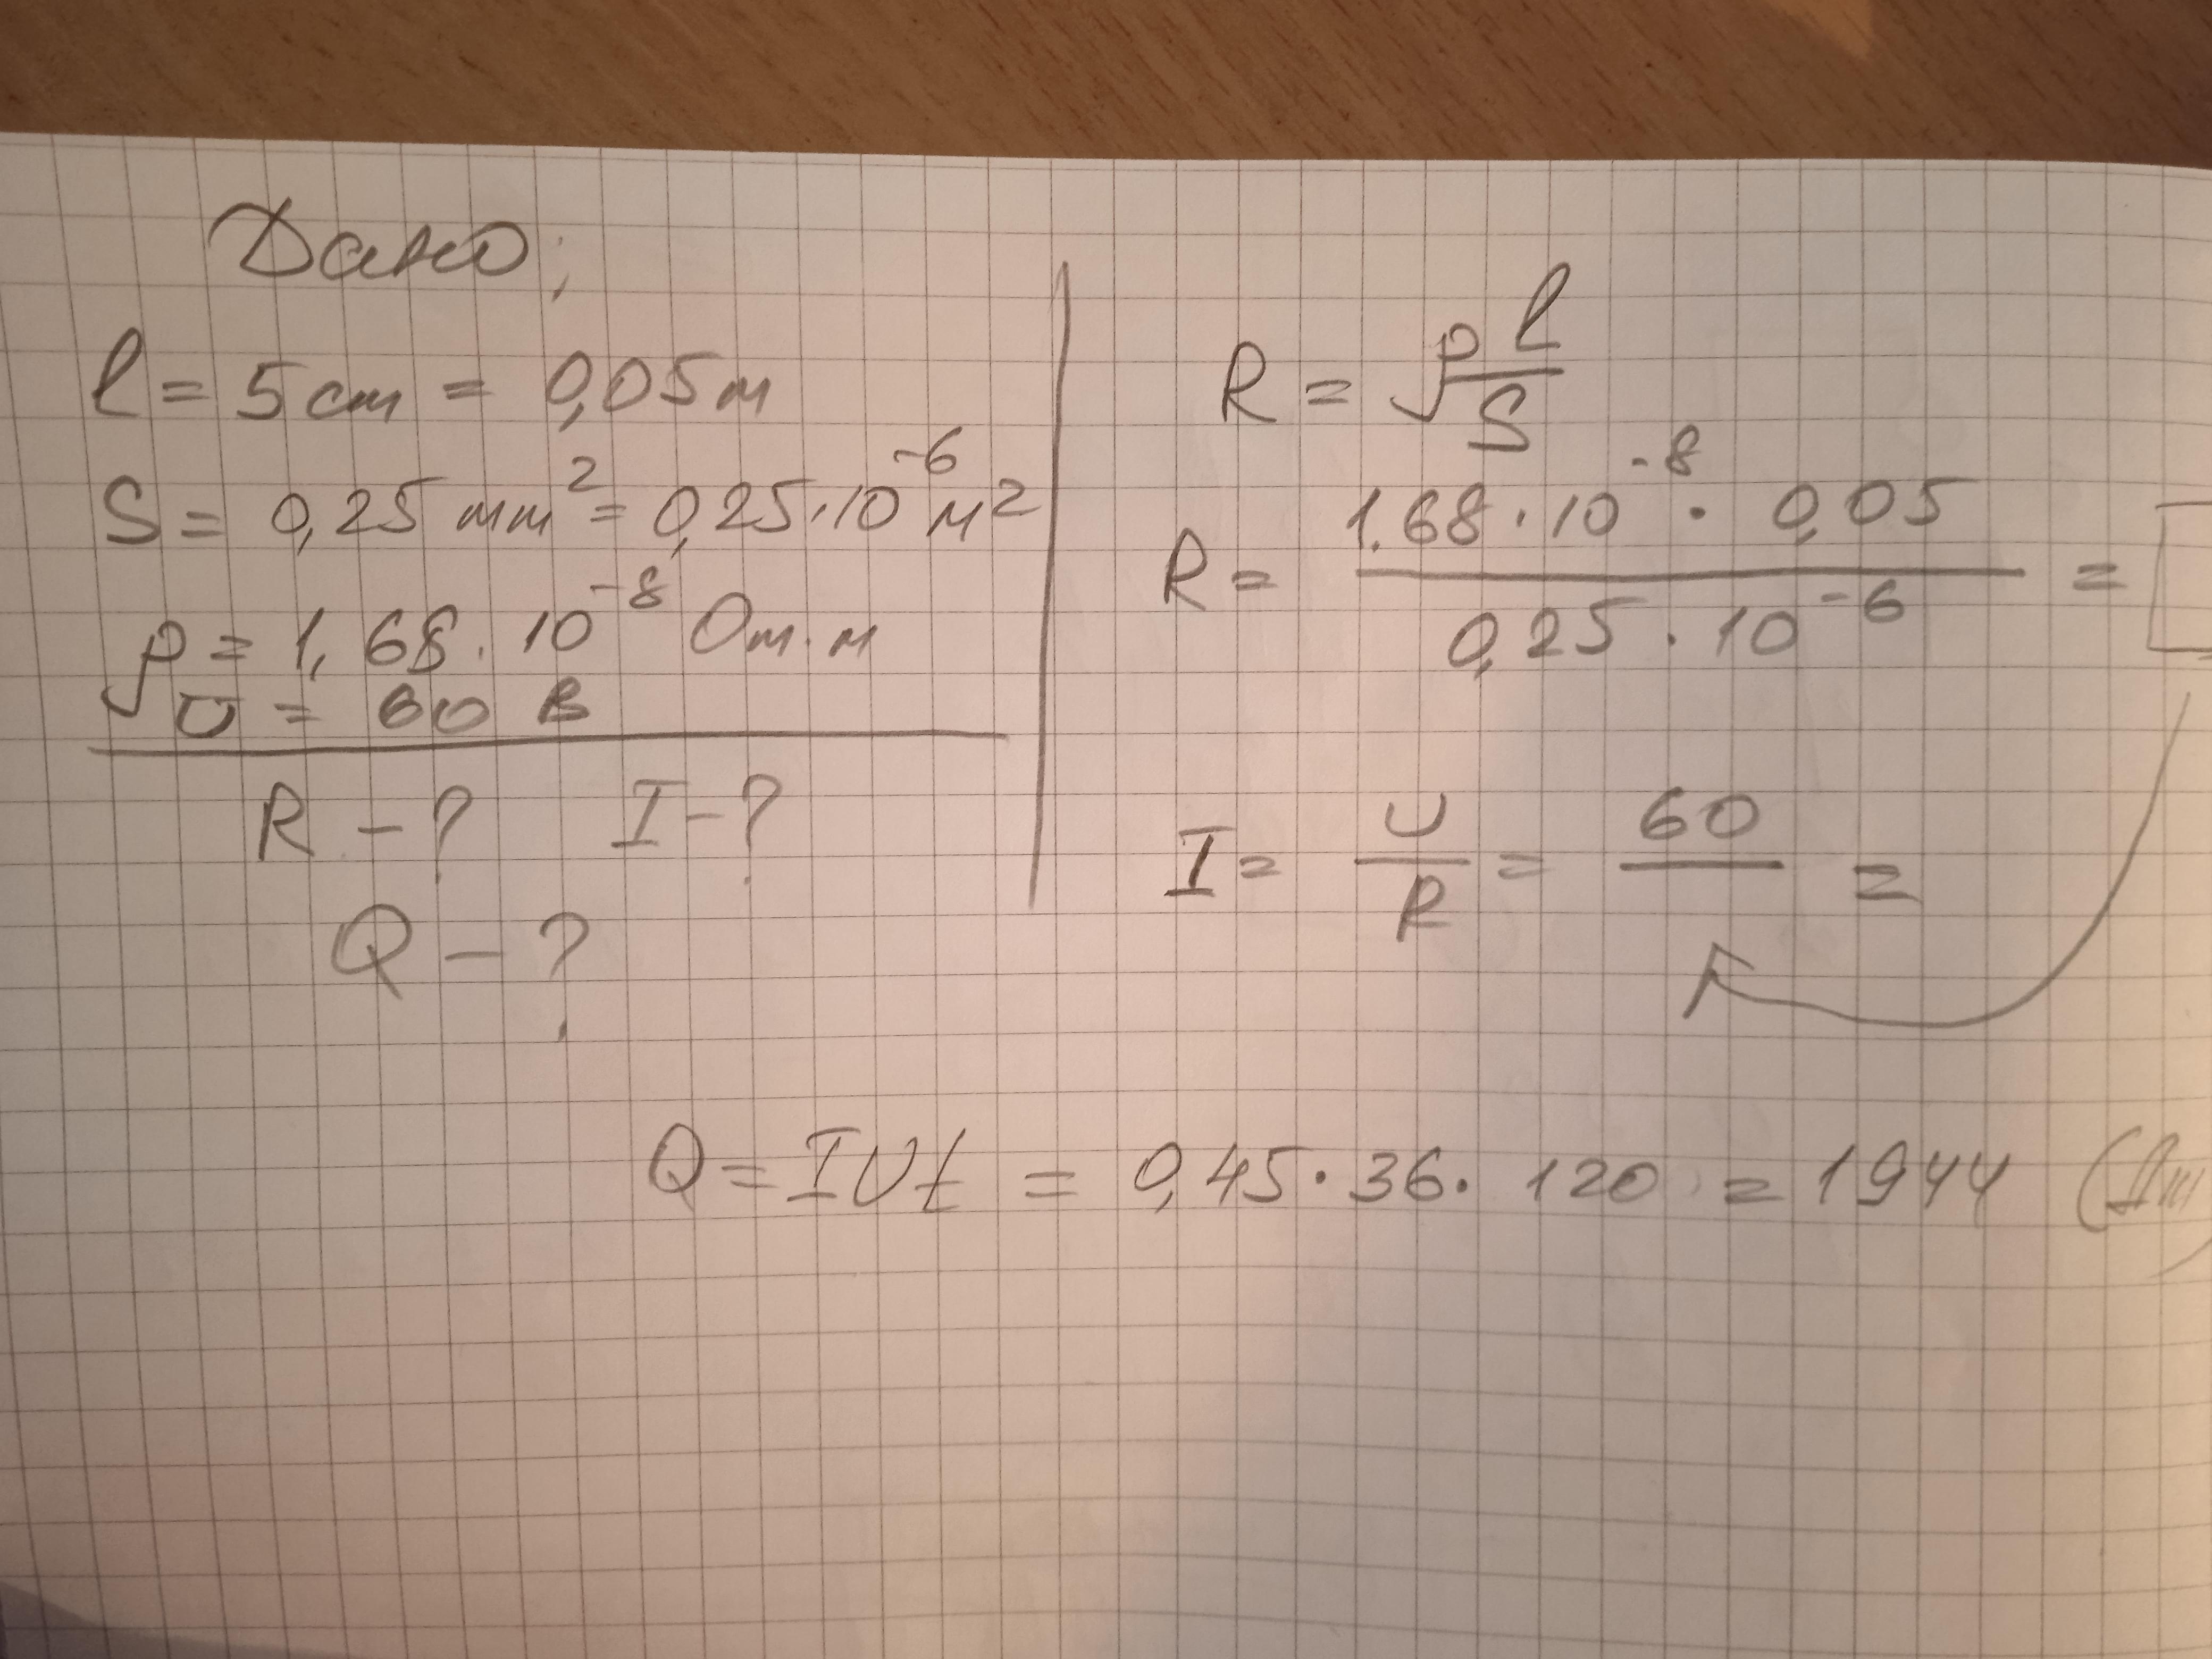 Дано;
l = 5 cm = 0,05 м
S = 0,25 mm² = 0,25 · 10⁻⁶ м²
ρ = 1,68 · 10⁻⁸ Ом · м
U = 60 В
R - ? I - ?
Q - ?
R = ρ l/S
R = (1.68 · 10⁻⁸ · 0,05)/(0,25 · 10⁻⁶) =
I = U/R = 60/ =
Q = IUt = 0,45 · 36 · 120 = 1944 (Дж)